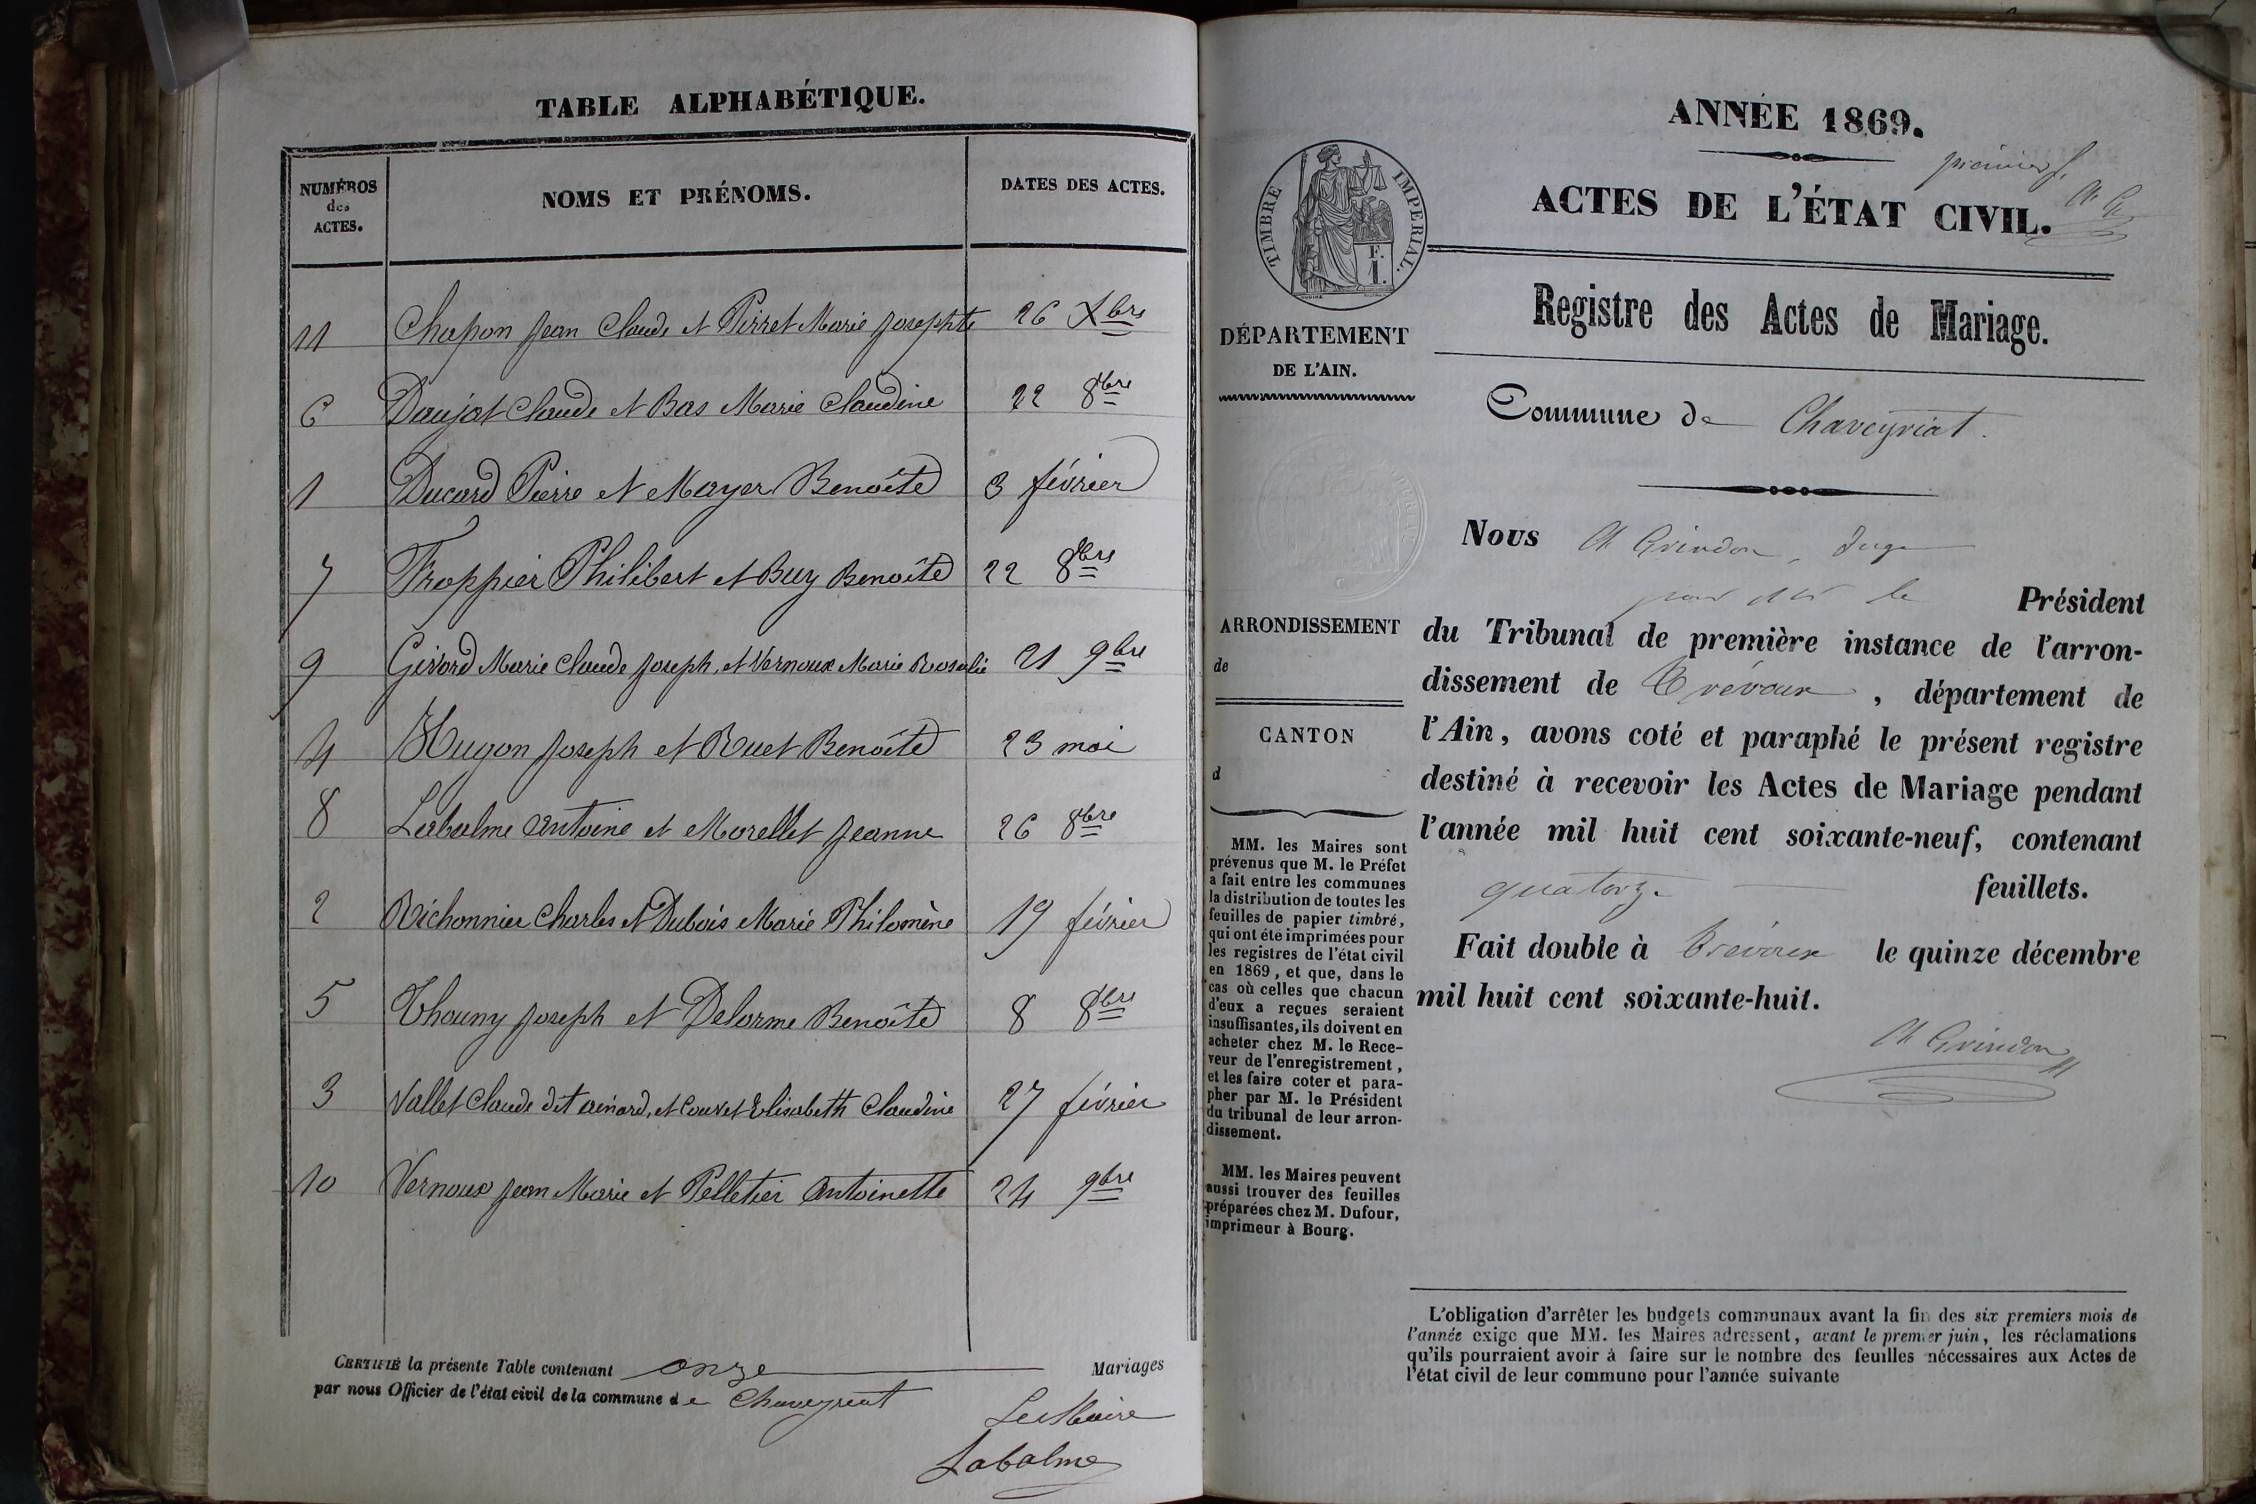 TABLE ALPHABÉTIQUE.
NUMÉROS
des
ACTES.
NOMS ET PRÉNOMS.
DATES DES ACTES.
11 Chapon Jean Claude et Perret Marie Josephte 26 Xbre
6 Daujat Claude et Bas Marie Claudine 22 8bre
1 Ducard Pierre et Mayer Benoîte 3 février
7 Froppier Philibert et Buy Benoîte 22 8bre
9 Girard Marie Claude Joseph, et Vernoux Marie Rosalie 21 9bre
4 Hugon Joseph et Ruet Benoîte 23 mai
8 Labalme Antoine et Morellet Jeanne 26 8bre
2 Richonnier Charles et Dubois Marie Philomène 19 février
5 Thouny Joseph et Delorme Benoîte 8 8bre
3 Vallet Claude dit et Couvet Elisabeth Claudine 27 février
10 Vernoux Jean Marie et Pelletier Antoinette 24 9bre
CERTIFIÉ la présente Table contenant onze Mariages
par nous Officier de l'état civil de la commune de Chaveyriat
Le Maire
Labalme
ANNÉE 1869.
premier f.
ACTES DE L'ÉTAT CIVIL.
TIMBRE IMPERIAL.
F.
I.
Registre des Actes de Mariage.
DÉPARTEMENT
DE L'AIN.
Commune de Chaveyriat.
Nous Grindon, Juge
pour le Président
ARRONDISSEMENT
de
CANTON
d
du Tribunal de première instance de l'arron-
dissement de Trévoux, département de
l'Ain, avons coté et paraphé le présent registre
destiné à recevoir les Actes de Mariage pendant
l'année mil huit cent soixante-neuf, contenant
quatorze feuillets.
Fait double à Trévoux le quinze décembre
mil huit cent soixante-huit.
Grindon
MM. les Maires sont
prévenus que M. le Préfet
a fait entre les communes
la distribution de toutes les
feuilles de papier timbré,
qui ont été imprimées pour
les registres de l'état civil
en 1869, et que, dans le
cas où celles que chacun
d'eux a reçues seraient
insuffisantes, ils doivent en
acheter chez M. le Rece-
veur de l'enregistrement,
et les faire coter et para-
pher par M. le Président
du tribunal de leur arron-
dissement.
MM. les Maires peuvent
aussi trouver des feuilles
préparées chez M. Dufour,
imprimeur à Bourg.
L'obligation d'arrêter les budgets communaux avant la fin des six premiers mois de
l'année exige que MM. les Maires adressent, avant le premier juin, les réclamations
qu'ils pourraient avoir à faire sur le nombre des feuilles nécessaires aux Actes de
l'état civil de leur commune pour l'année suivante